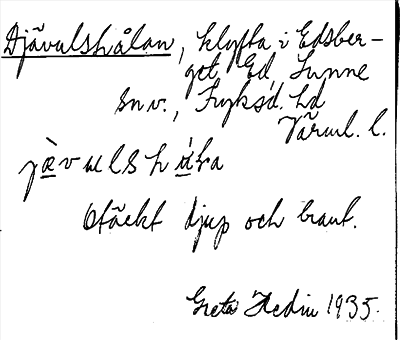 Djävulshålan, klyfta i Edsber-
get, Ed, Sunne
sn v., Fryksd. hd
Värml. l.
jæ̀vulshåla
Otäckt djup och brant.
Greta Hedin 1935.